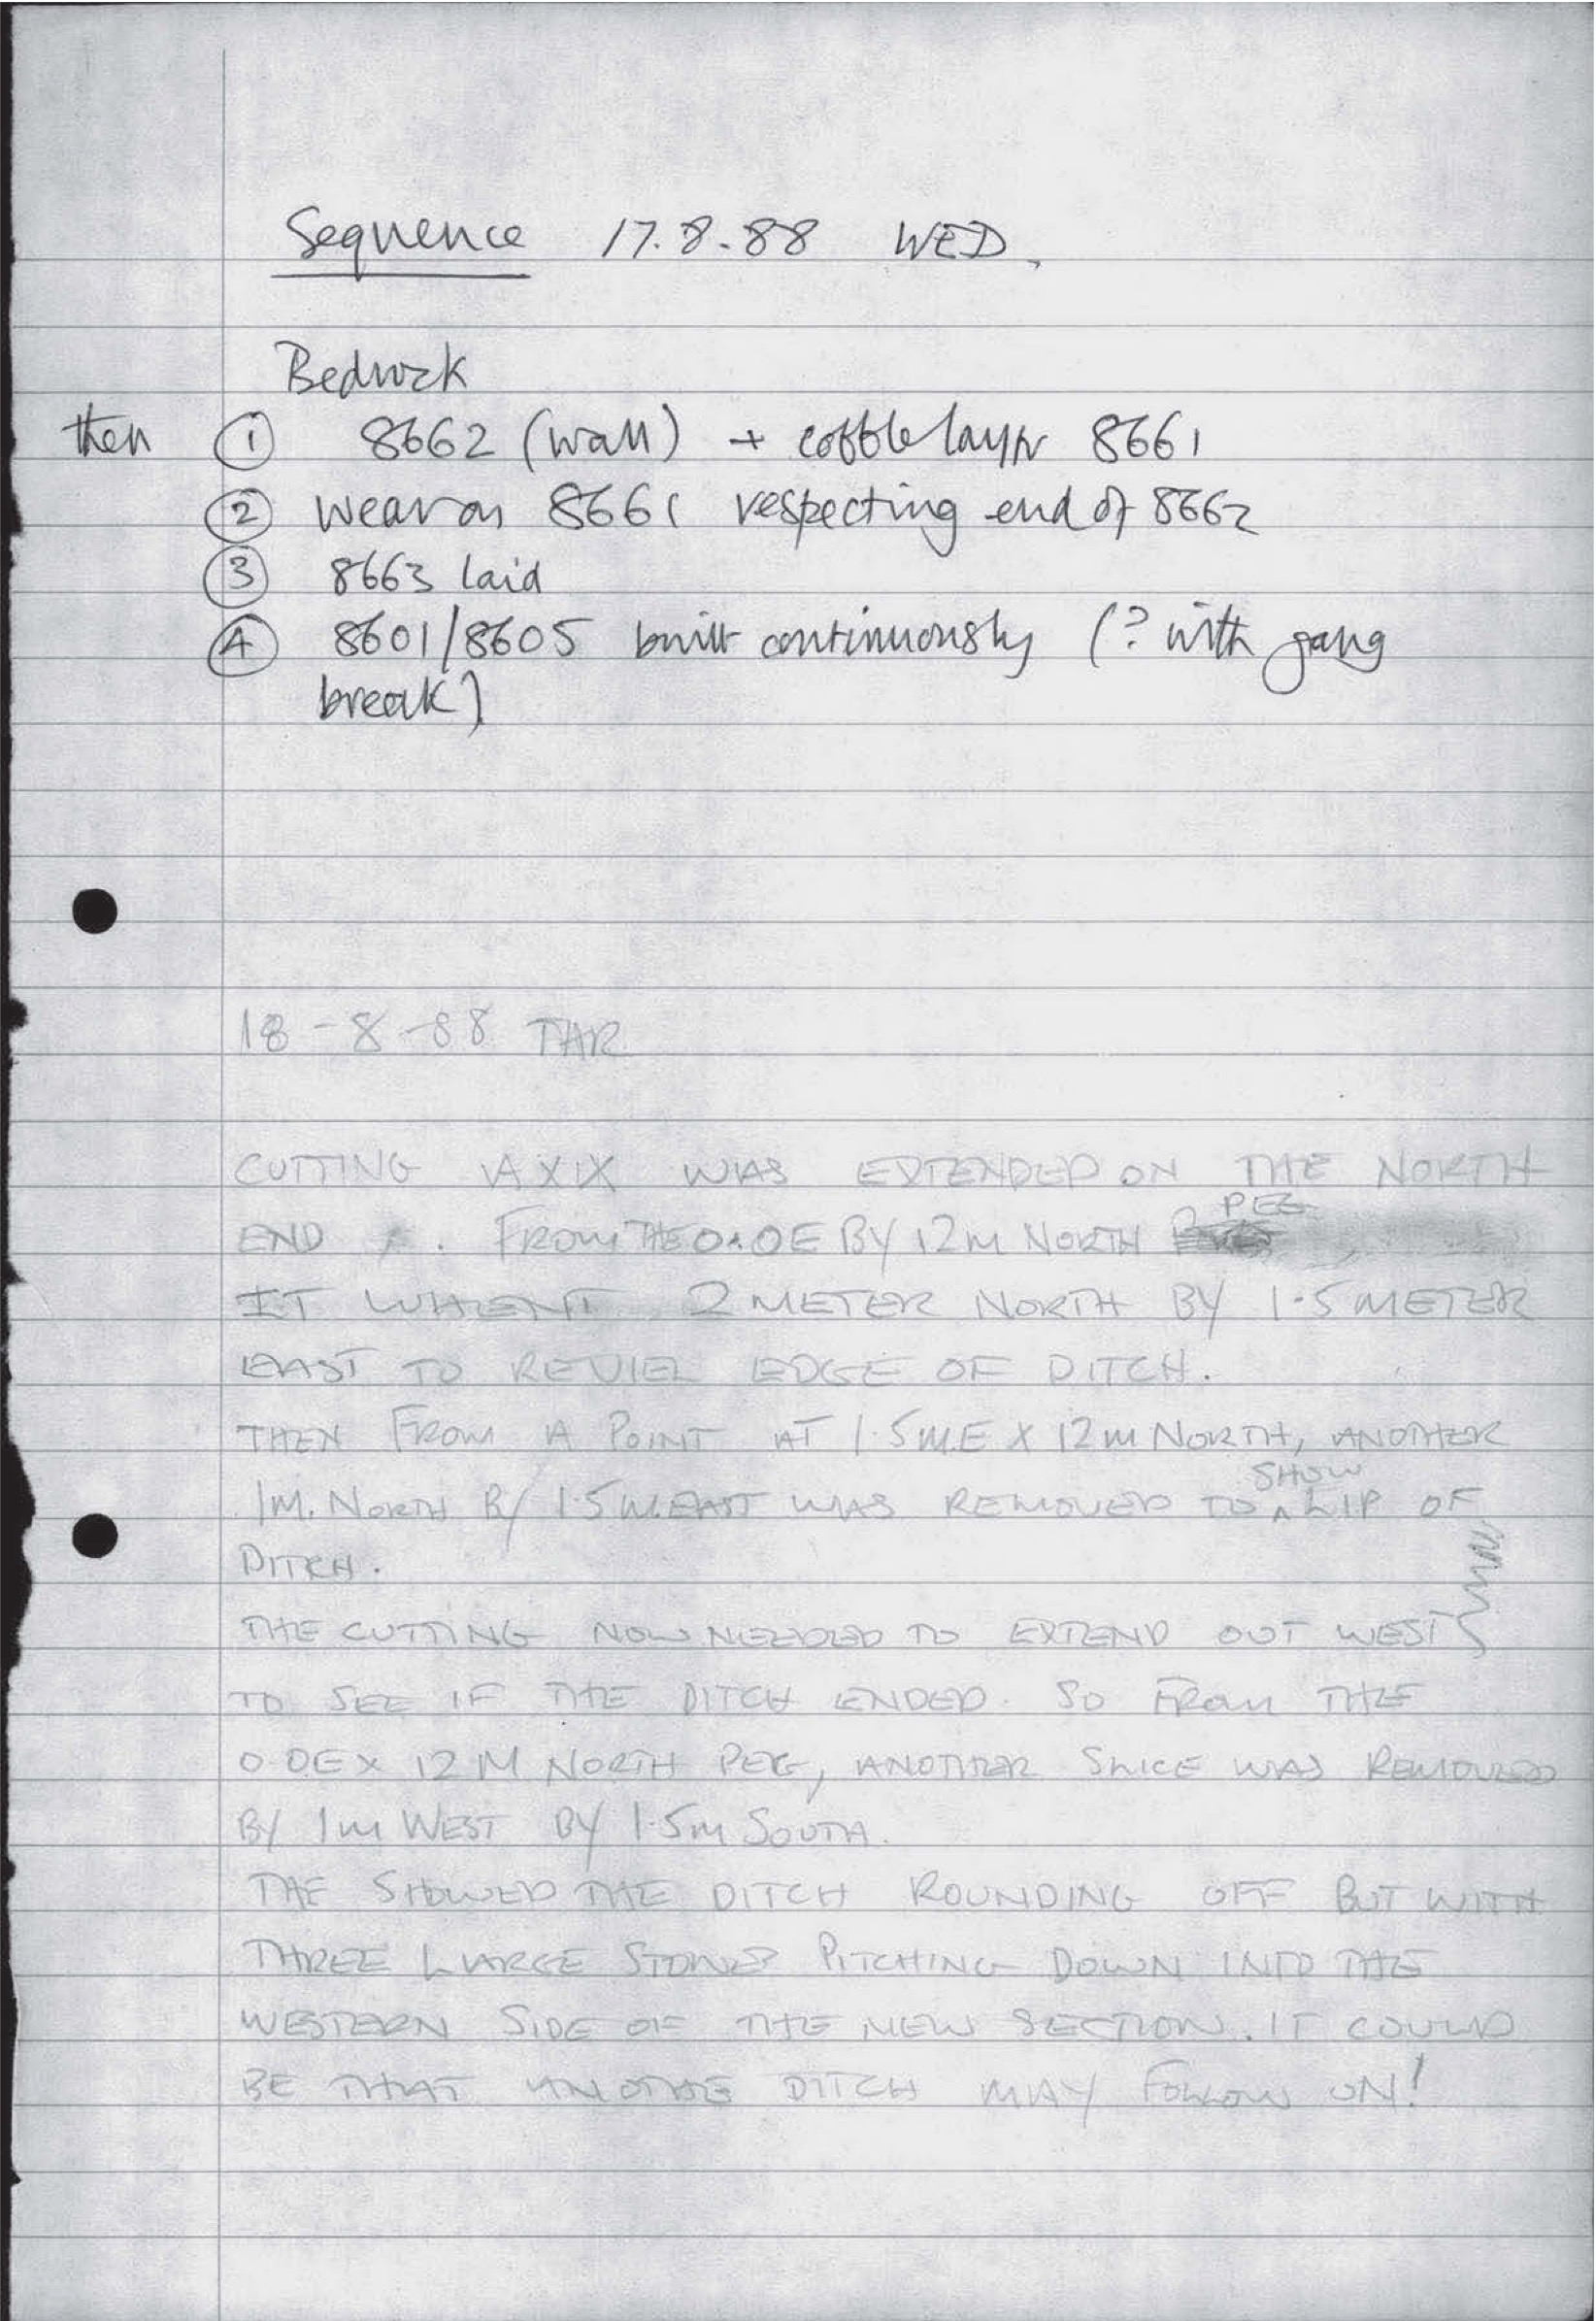 Sequence 17.8.88 WED.
Bedrock
then ① 8662 (wall) + cobble layer 8661
② wear on 8661 respecting end of 8662
③ 8663 laid
④ 8601/8605 built continuously (? with gang
break)
18-8-88 THR
CUTTING AXIX WAS EXTENDED ON THE NORTH
END . FROM THE 0.0E BY 12M NORTH PEG
IT WHENT 2 METER NORTH BY 1.5 METER
EAST TO REVIEL EDGE OF DITCH.
THEN FROM A POINT AT 1.5M.E X 12M NORTH, ANOTHER
1M. NORTH BY 1.5M.EAST WAS REMOVED TO SHOW LIP OF
DITCH.
THE CUTTING NOW NEEDED TO EXTEND OUT WEST
TO SEE IF THE DITCH ENDED. SO FROM THE
0.0E X 12M NORTH PEG, ANOTHER SLICE WAS REMOVED
BY 1M WEST BY 1.5M SOUTH.
THE SHOWED THE DITCH ROUNDING OFF BUT WITH
THREE LARGE STONES PITCHING DOWN INTO THE
WESTERN SIDE OF THE NEW SECTION. IT COULD
BE THAT DITCH MAY FOLLOW ON!